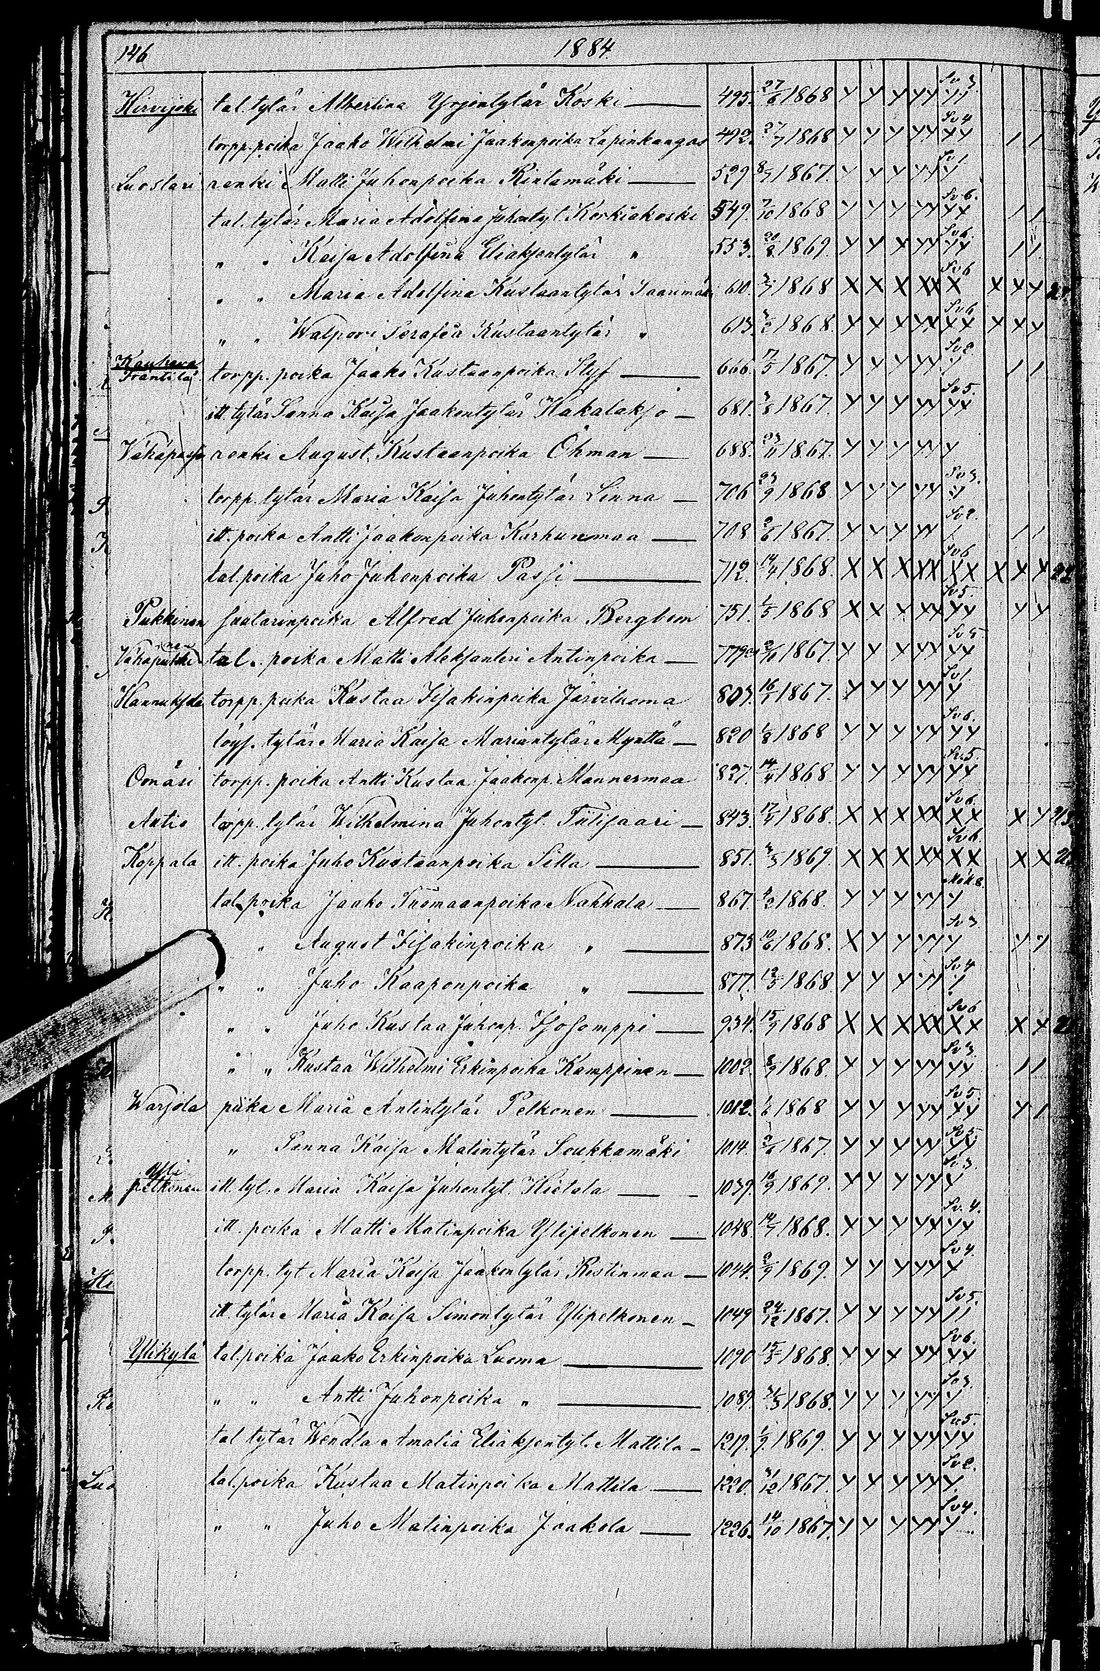 146 1884.
Hirvijoki tal. tytär Albertina Yrjöntytär Koski — 495. 27/6 1868 Y Y Y Y Y Sv 3. Y Y
torpp. poika Jaako Wilhelmi Jaakonpoika Lapinkangas 492. 27/7 1868 Y Y Y Y Y Sv 4 Y Y 1 1
Luostari renki Matti Juhonpoika Rintamäki — 529 1867. Y Y Y Y Y Sv 1. Y
tal. tytär Maria Adolfina Juhontyt. Korkiakoski 549. 7/10 1868 Y Y Y Y Y Sv 6. Y Y 1 1
„ „ Kaisa Adolfina Eliaksentytär „ 553. 1869 Y Y Y Y Y Sv 6. Y Y 1 1
„ „ Maria Adolfina Kustaantytär Saarimäki 610. 1868 X X X X X Sv 6 X X Y Y
„ „ Walpori Serafia Kustaantytär „ 613. 1868. X X X X X Sv 6 X X X X Y
Kauhava Frantilä torpp. poika Jaako Kustaanpoika Styf — 666. 17/5 1867. Y Y Y Y Y Sv 2 Y 1 1
itt. tytär Sanna Kaisa Jaakontytär Hakalaksio — 681. 1867. Y Y Y Y Y Sv 5. Y Y
Vähäpassi renki August Kustaanpoika Öhman — 688. 1867. Y Y Y Y Y Y
torpp. tytär Maria Kaisa Juhontytär Linna — 706 23/9 1868 Y Y Y Y Y Sv 3. Y
itt. poika Antti Jaakonpoika Karhunmaa — 708 1867. Y Y Y Y Y Sv 2. 1 1
tal. poika Juho Juhonpoika Passi — 712. 14/7 1868. X X X X X Sv 6 X X X X Y
Pukkinen suutarinpoika Alfred Juhonpoika Bergbom 751. 1/5 1868 X X X X X Sv 5. Y Y Y Y
Vähäpukkinen tal. poika Matti Aleksanteri Antinpoika — 779 1867. Y Y Y Y Y Sv 5 Y Y
Hannuksela torpp. poika Kustaa Iisakinpoika Järviluoma 803. 16/7 1867. Y Y Y Y Y Sv 1. Y
löys. tytär Maria Kaisa Mariantytär Mynttä — 820 1/8 1868 Y Y Y Y Y Sv 6. Y Y
torpp. poika Antti Kustaa Jaakonp. Mannermaa 827. 1868 Y Y Y Y Y Sv 5. Y Y
Antio torpp. tytär Wilhelmina Juhontyt. — 843. 1868. X X X X X Sv 6. X X X Y
Koppala itt. poika Juho Kustaanpoika Silta — 851. 1869 X X X X X Sv 6 X X X X
tal. poika Jaako Tuomaanpoika Nahkala — 867. 1868 Y Y Y Y Y Y
„ August Iisakinpoika „ — 873. 1868. X Y Y Y Y Sv 3 Y Y Y
„ „ Juho Kaaponpoika „ — 877. 13/5 1868 Y Y Y Y Y Sv 4 Y
„ „ Juho Kustaa Juhonp. Isosomppi — 934. 1868 X X X X X Sv 6 X X X X
„ „ Kustaa Wilhelmi Erkinpoika Kamppinen — 1002. 1868. Y Y Y Y Y Sv 3. Y Y 1 1
Warjola piika Maria Antintytär Pelkonen — 1012. 1/6 1868 Y Y Y Y Y Sv 5. Y Y Y 1
„ Sanna Kaisa Matintytär Loukkamäki 1014. 1867. Y Y Y Y Y Sv 5. Y Y
Yli pelkonen itt. tyt. Maria Kaisa Juhontyt. Hietala — 1039. 1869. Y Y Y Y Y Sv 3. Y
itt. poika Matti Matinpoika Ylipelkonen — 1048. 1868. X Y Y Y Y Sv. 4. Y Y
torpp. tyt. Maria Kaisa Jaakontytär Ristinmaa — 1044. 1869. Y Y Y Y Y Sv 4. Y
itt. tytär Maria Kaisa Simontytär Ylipelkonen — 1049 24/12 1867. Y Y Y Y Y Sv 5. Y Y
Ylikylä tal. poika Jaako Erkinpoika Luoma — 1090 15/5 1868. Y Y Y Y Y Sv 6. Y Y
„ „ Antti Juhonpoika „ — 1089. 31/5 1868. Y Y Y Y Y Sv 3. Y
tal. tytär Wendla Amalia Eliaksentyt. Mattila — 1219. 1/9 1869. Y Y Y Y Y Sv 5. Y Y
tal. poika Kustaa Matinpoika Mattila — 1220. 31/12 1867. Y Y Y Y Y Sv 2. Y
„ „ Juho Matinpoika Jaakola — 1226. 14/10 1867. Y Y Y Y Y Sv 4. Y